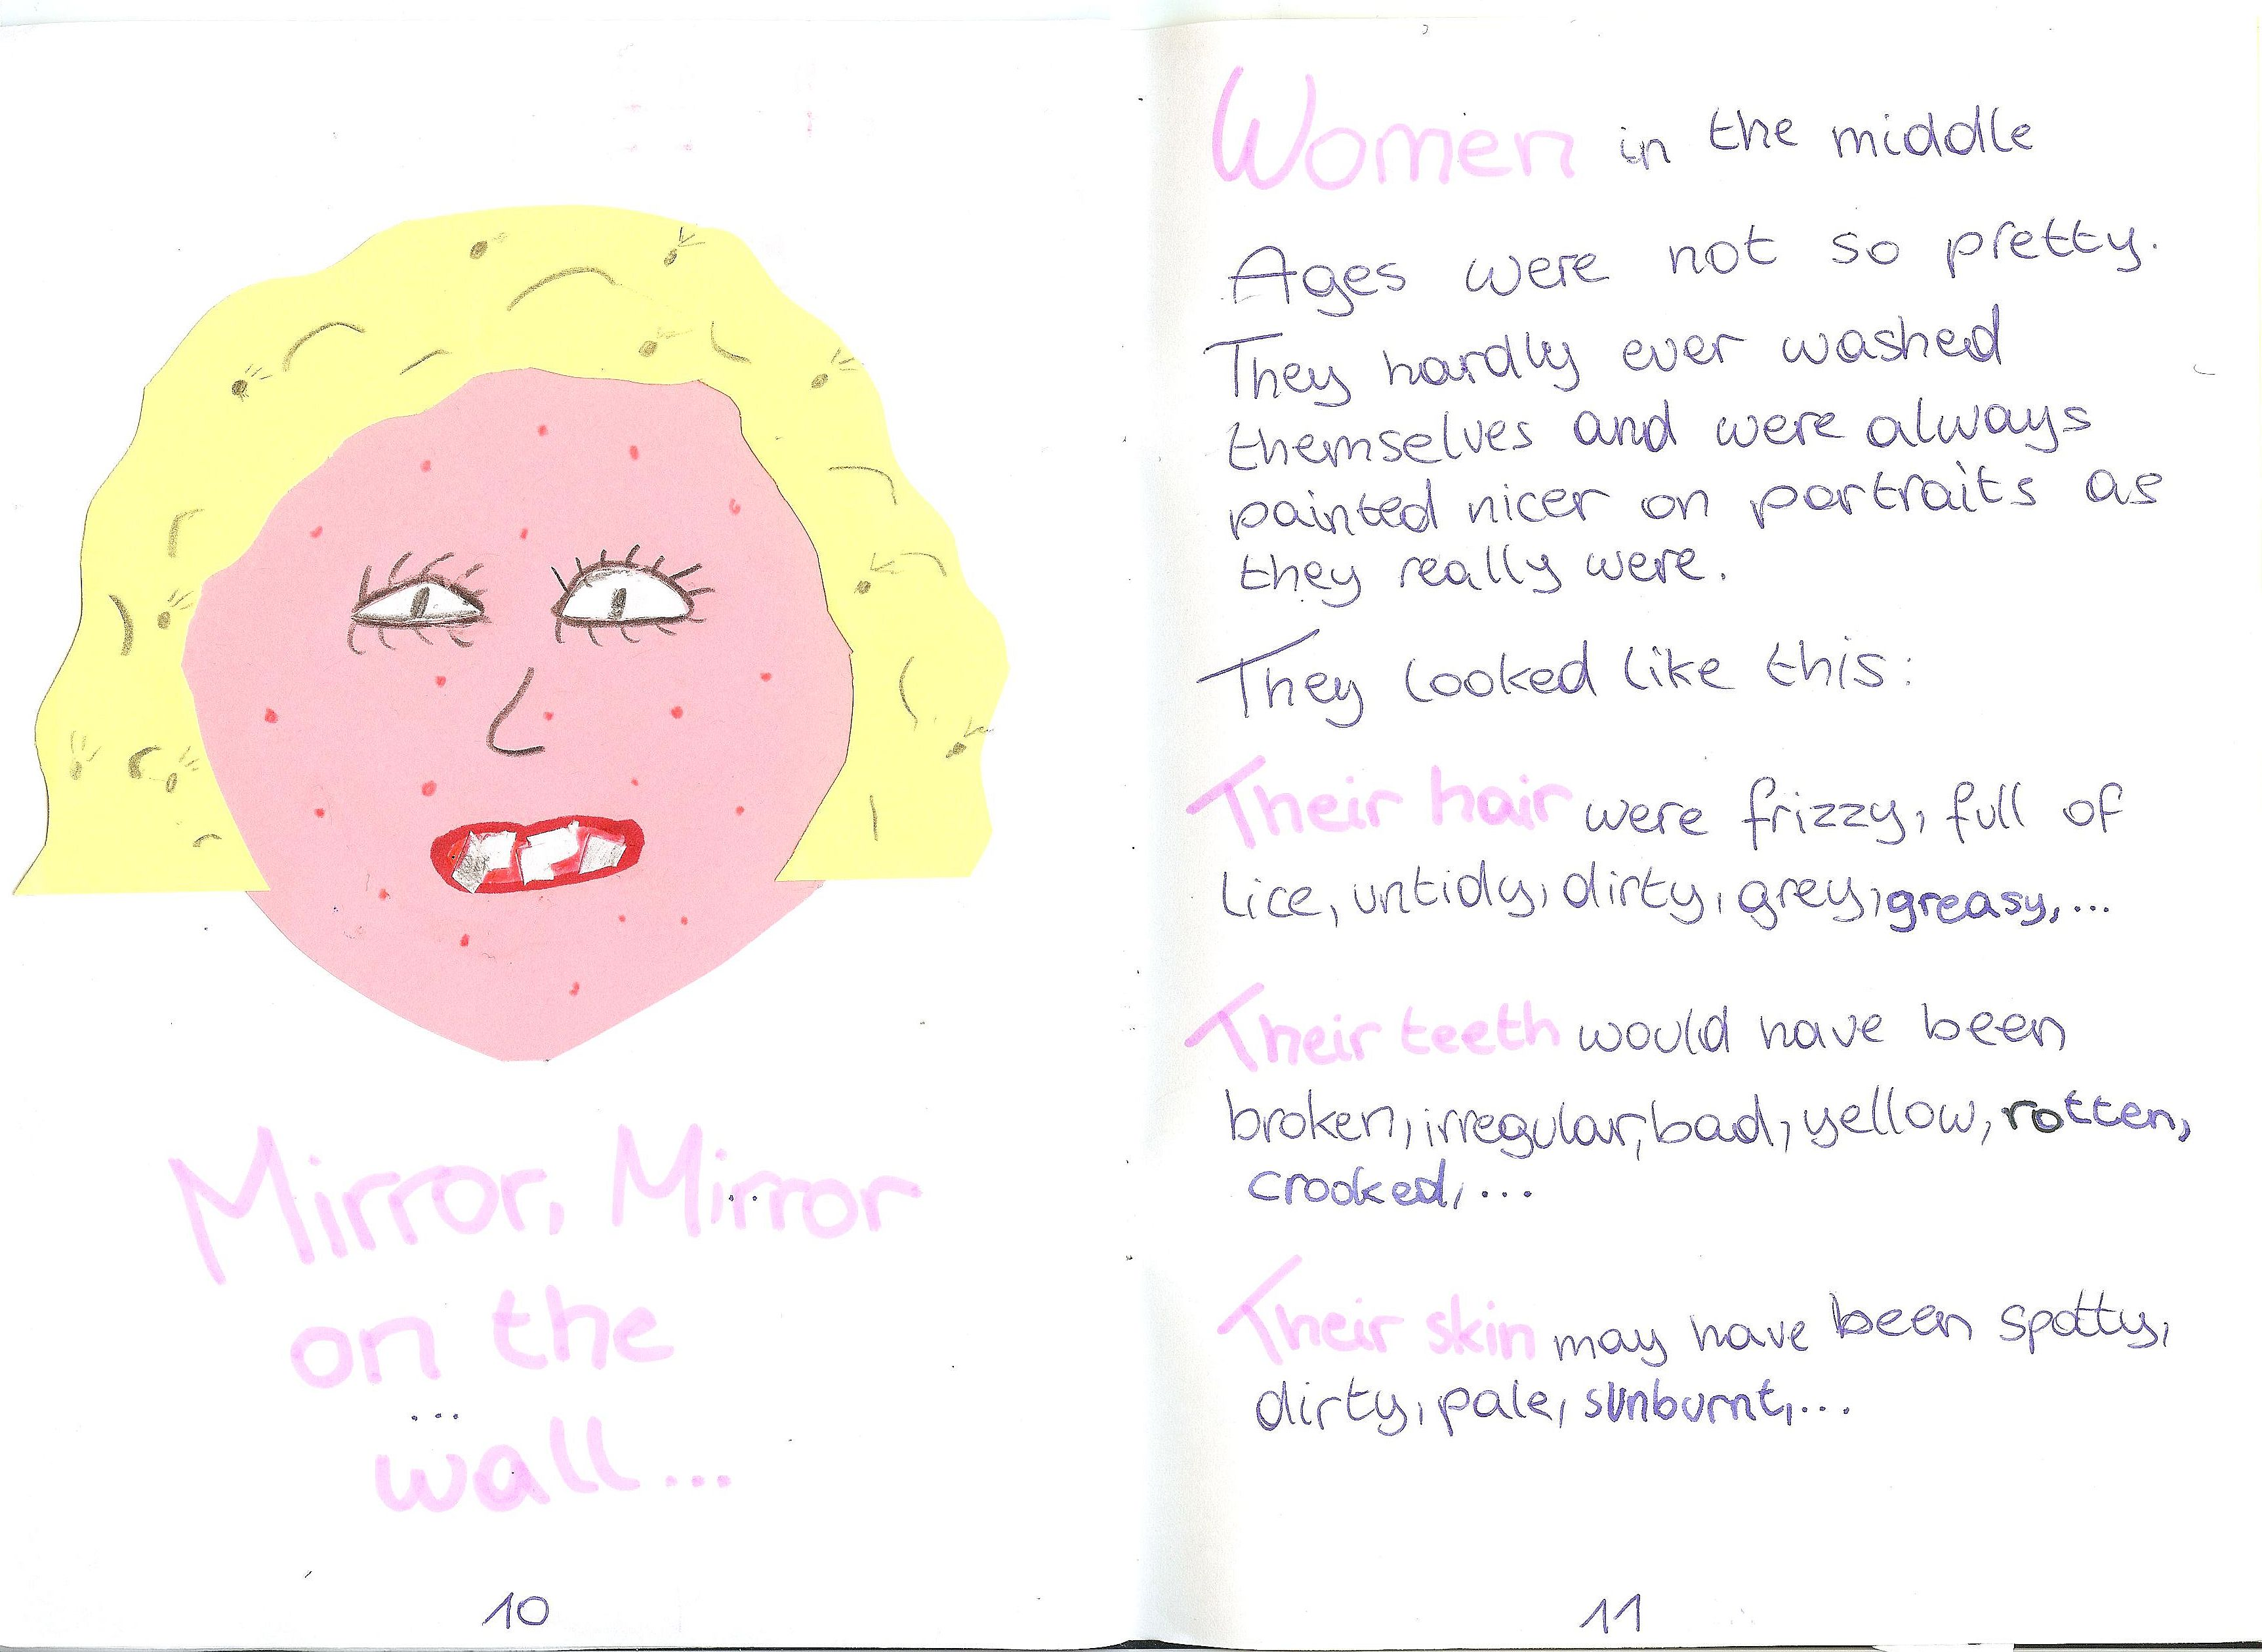 Mirror, Mirror
on the
wall...
10
Women in the middle
Ages were not so pretty.
They hardly ever washed
themselves and were always
painted nicer on portraits as
they really were.
They looked like this:
Their hair were frizzy, full of
lice, untidy, dirty, grey, greasy,...
Their teeth would have been
broken, irregular, bad, yellow, rotten,
crooked,...
Their skin may have been spotty,
dirty, pale, sunburnt,...
11